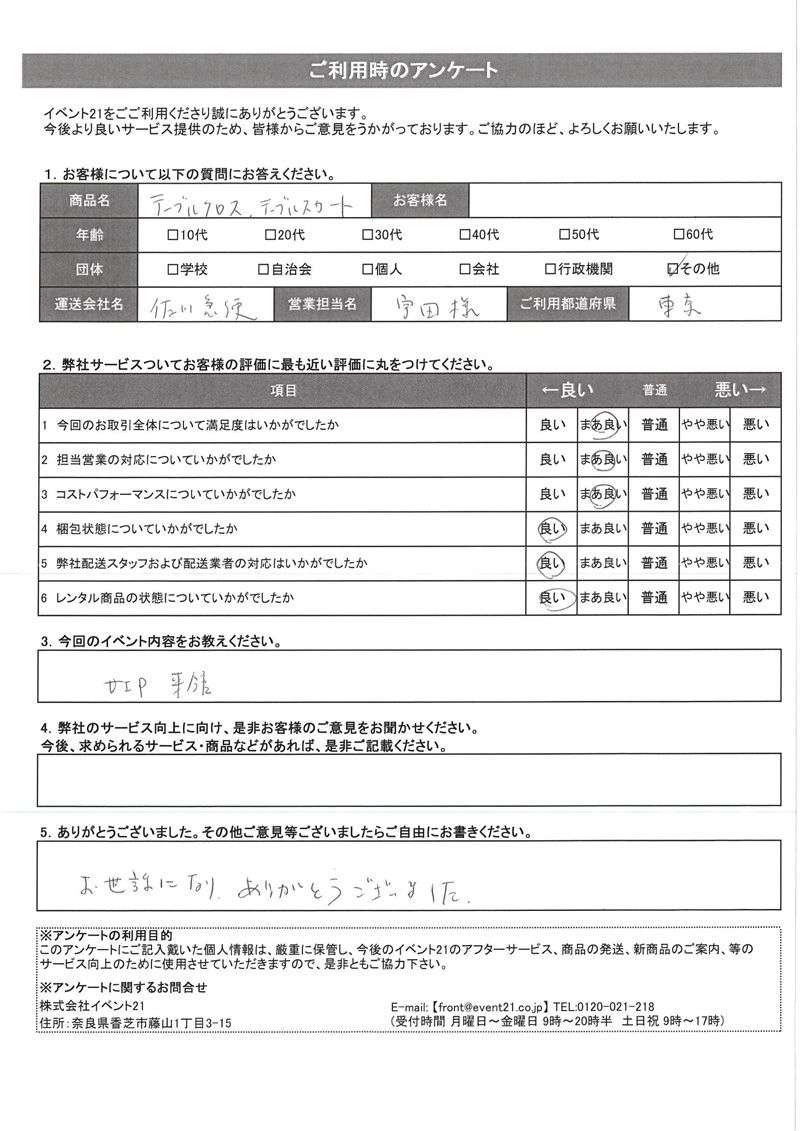 ご利用時のアンケート
イベント21をごご利用くださり誠にありがとうございます。
今後より良いサービス提供のため、皆様からご意見をうかがっております。ご協力のほど、よろしくお願いいたします。
1. お客様について以下の質問にお答えください。
商品名 テーブルクロス、テーブルスカート お客様名
年齢 □10代 □20代 □30代 □40代 □50代 □60代
団体 □学校 □自治会 □個人 □会社 □行政機関 ☑その他
運送会社名 佐川急便 営業担当名 宇田様 ご利用都道府県 東京
2. 弊社サービスついてお客様の評価に最も近い評価に丸をつけてください。
項目 ←良い 普通 悪い→
1 今回のお取引全体について満足度はいかがでしたか 良い まあ良い 普通 やや悪い 悪い
2 担当営業の対応についていかがでしたか 良い まあ良い 普通 やや悪い 悪い
3 コストパフォーマンスについていかがでしたか 良い まあ良い 普通 やや悪い 悪い
4 梱包状態についていかがでしたか 良い まあ良い 普通 やや悪い 悪い
5 弊社配送スタッフおよび配送業者の対応はいかがでしたか 良い まあ良い 普通 やや悪い 悪い
6 レンタル商品の状態についていかがでしたか 良い まあ良い 普通 やや悪い 悪い
3. 今回のイベント内容をお教えください。
4. 弊社のサービス向上に向け、是非お客様のご意見をお聞かせください。
今後、求められるサービス・商品などがあれば、是非ご記載ください。
5. ありがとうございました。その他ご意見等ございましたらご自由にお書きください。
お世話になり、ありがとうございました。
※アンケートの利用目的
このアンケートにご記入戴いた個人情報は、厳重に保管し、今後のイベント21のアフターサービス、商品の発送、新商品のご案内、等の
サービス向上のために使用させていただきますので、是非ともご協力下さい。
※アンケートに関するお問合せ
株式会社イベント21 E-mail:【front@event21.co.jp】 TEL:0120-021-218
住所:奈良県香芝市藤山1丁目3-15 (受付時間 月曜日～金曜日 9時～20時半 土日祝 9時～17時)